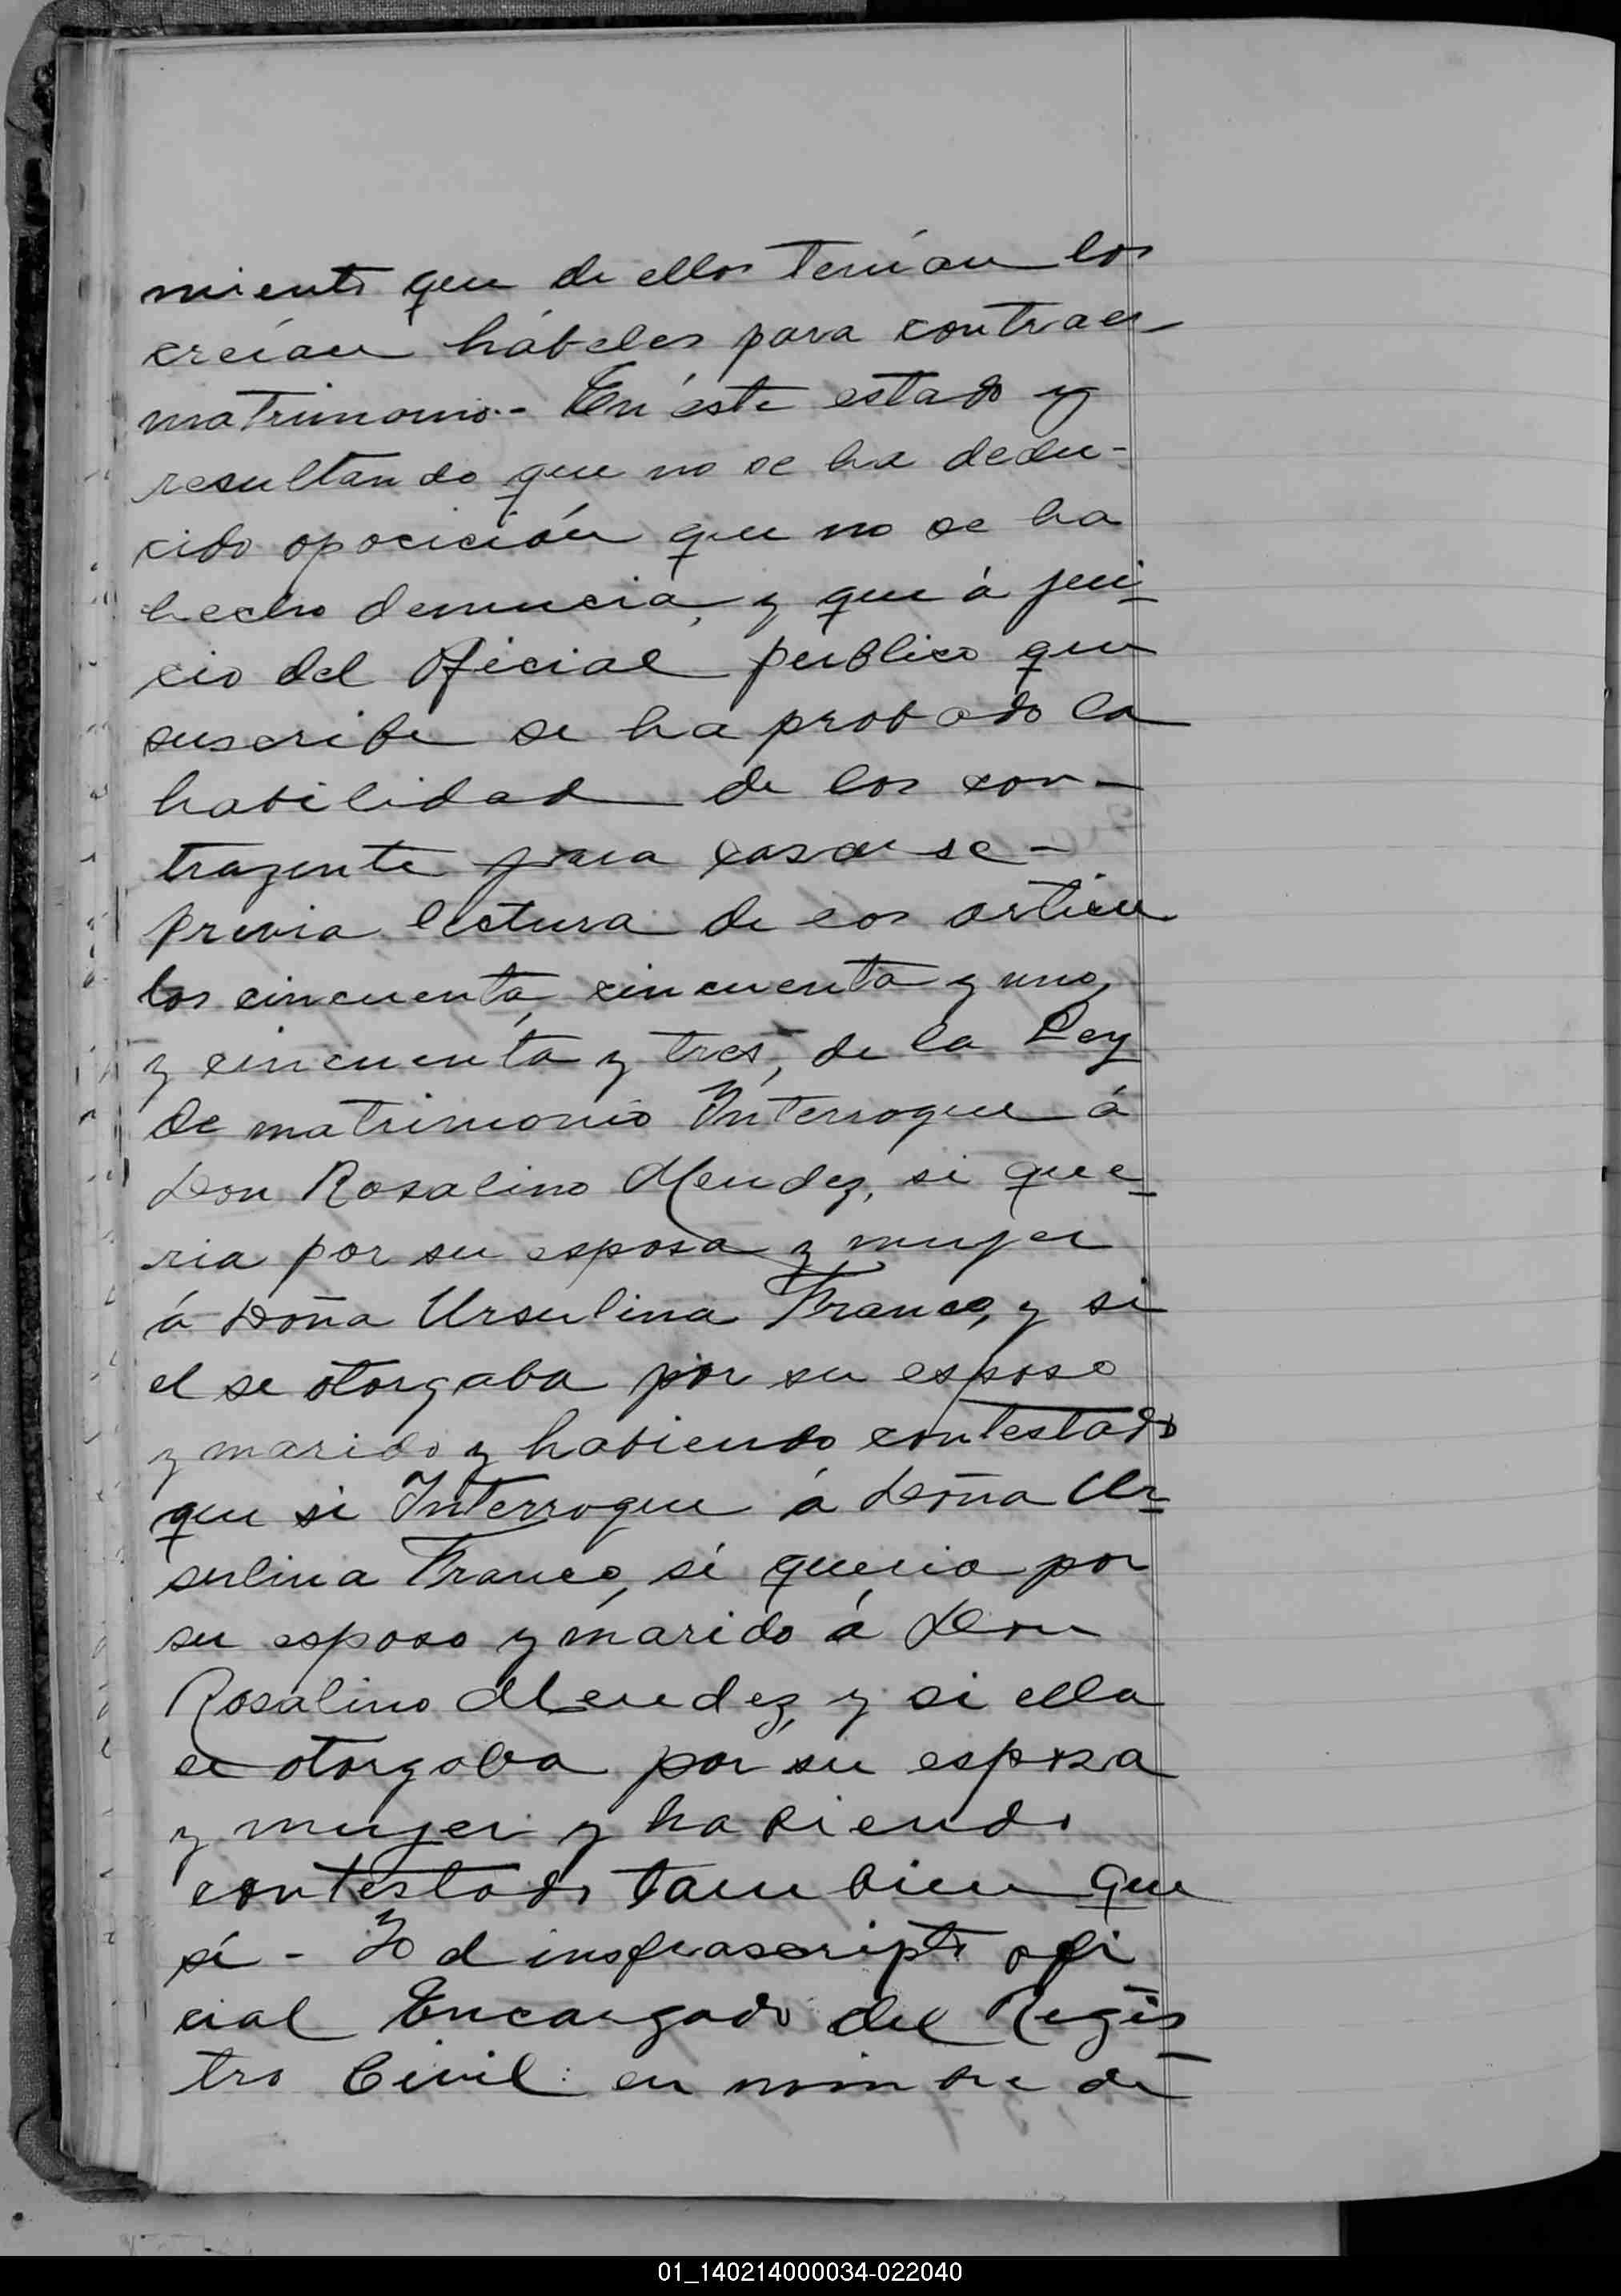 miento que de ellos tenían los
creían hábeles para contraer
matrimonio.- En éste estado y
resultando que no se ha dedu-
cido oposición que no se ha
hecho denuncia, y que á jui-
cio del Oficial publico que
suscribe se ha probado la
habilidad de los con-
trayente para casarse-
previa lectura de los articu
los cincuenta, cincuenta y uno,
y cincuenta y tres, de la Ley
de matrimonio Interrogue á
Don Rosalino Mendez, si que-
ria por su esposa y mujer
á Doña Ursulina Franco, y si
el se otorgaba por su esposo
y marido y habiendo contestado
que si Interrogue á Doña Ur-
sulina Franco, sí queria por
su esposo y marido á Don
Rosalino Mendez, y si ella
se otorgaba por su esposa
y mujer y habiendo
contestado tambien que
sí - Yo el insfrascripto ofi
cial Encargado del Regis
tro Civil: en nombre de
01_140214000034-022040